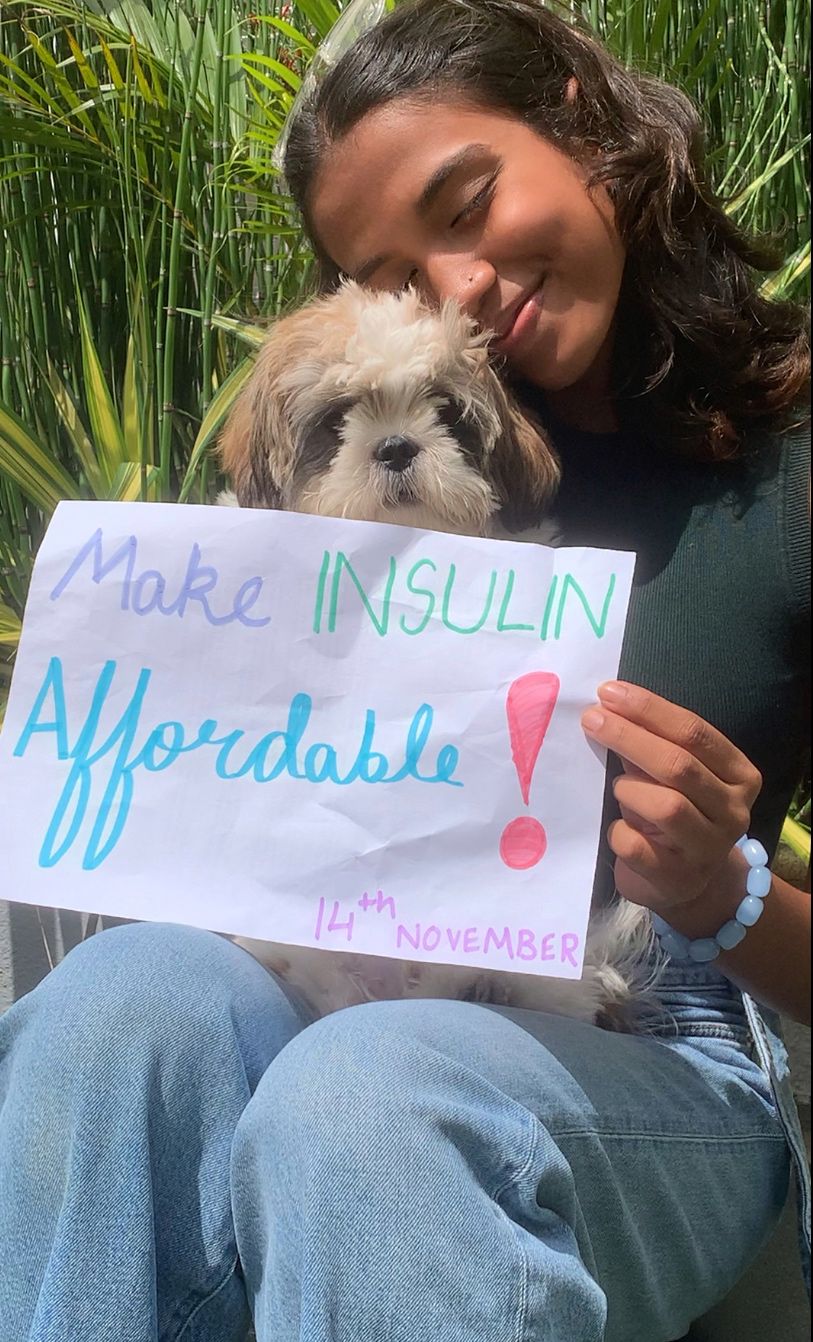 Make INSULIN
Affordable!
14th NOVEMBER